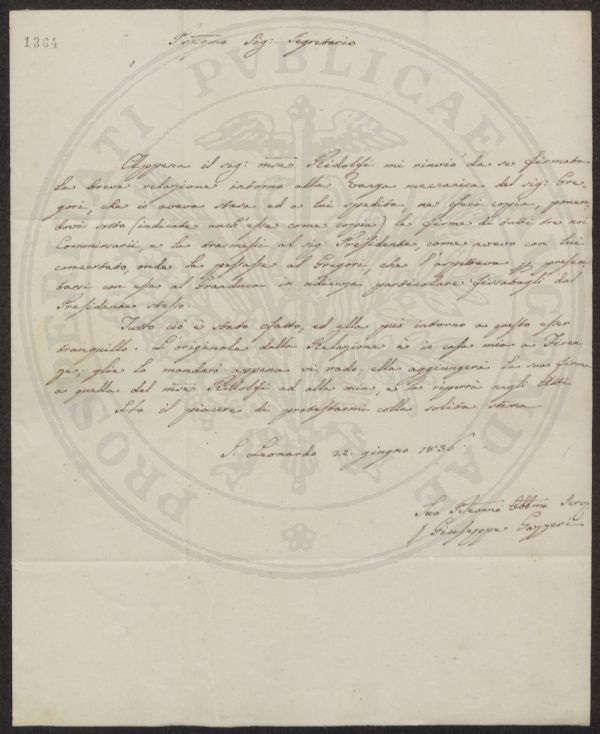 1364
Pregmo Sig: Segretario
Appena il sig: mse Ridolfi mi rinviò da se firmata
la breve relazione intorno alla Vanga meccanica del sig: Gre-
gori, che io aveva stesa ed a lui spedita, ne feci copia, ponen-
dovi sotto (indicate anch'esse come copia) le firme di tutti tre noi
Commissarii, e la trasmessi al sig: Presidente, come avevo con lui
concertato, onde la passasse al Gregori, che l'aspettava per presen-
tarsi con essa al Granduca in udienza particolare fissatagli dal
Presidente stesso.
Tutto ciò è stato fatto, ed ella può intorno a questo esser
tranquillo. L'originale della Relazione è in casa mia a Firen-
ze; glie lo manderò appena vi vada; ella aggiungerà la sua firma
a quella del mse Ridolfi ed alla mia, e la riporrà negli Atti.
Ho il piacere di protestarmi colla solita stima
S. Leonardo 22. giugno 1836
Suo Devmo Obbmo Serv
Giuseppe Gazzeri
PROSPERITATI PVBLICAE AVGENDAE